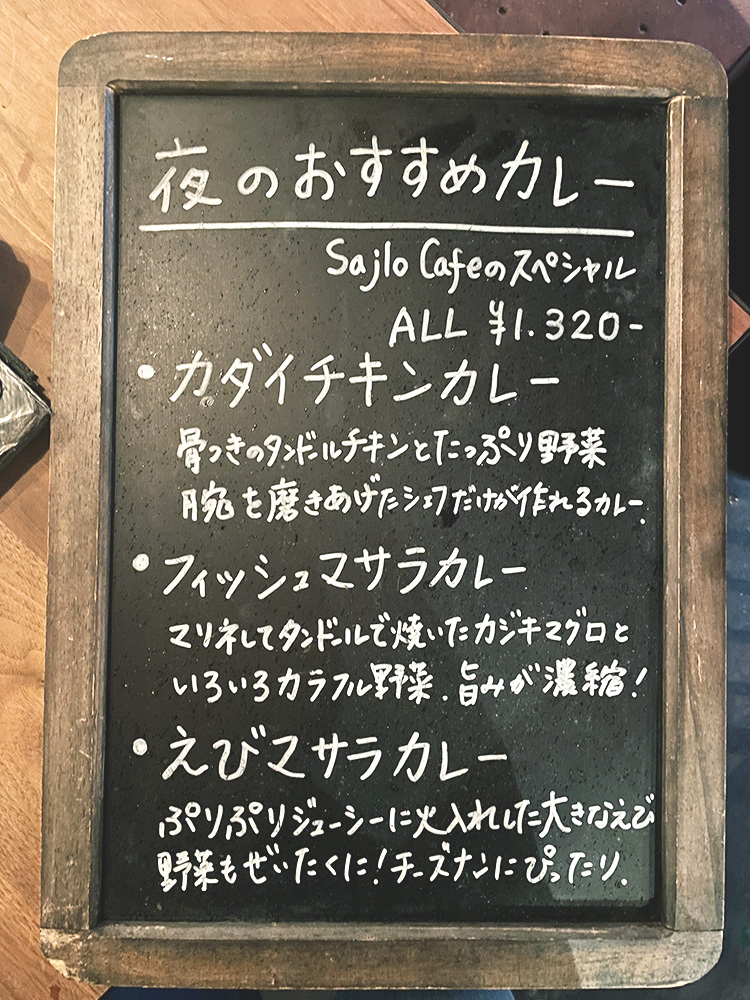 夜のおすすめカレー
Sajilo Cafeのスペシャル
ALL ¥1.320-
・カダイチキンカレー
骨つきのタンドルチキンとたっぷり野菜
腕を磨きあげたシェフだけが作れるカレー.
・フィッシュマサラカレー
マリネしてタンドールで焼いたカジキマグロと
いろいろカラフル野菜.旨みが濃縮!
・えびマサラカレー
ぷりぷりジューシーに火入れした大きなえび
野菜もぜいたくに!チーズナンにぴったり.